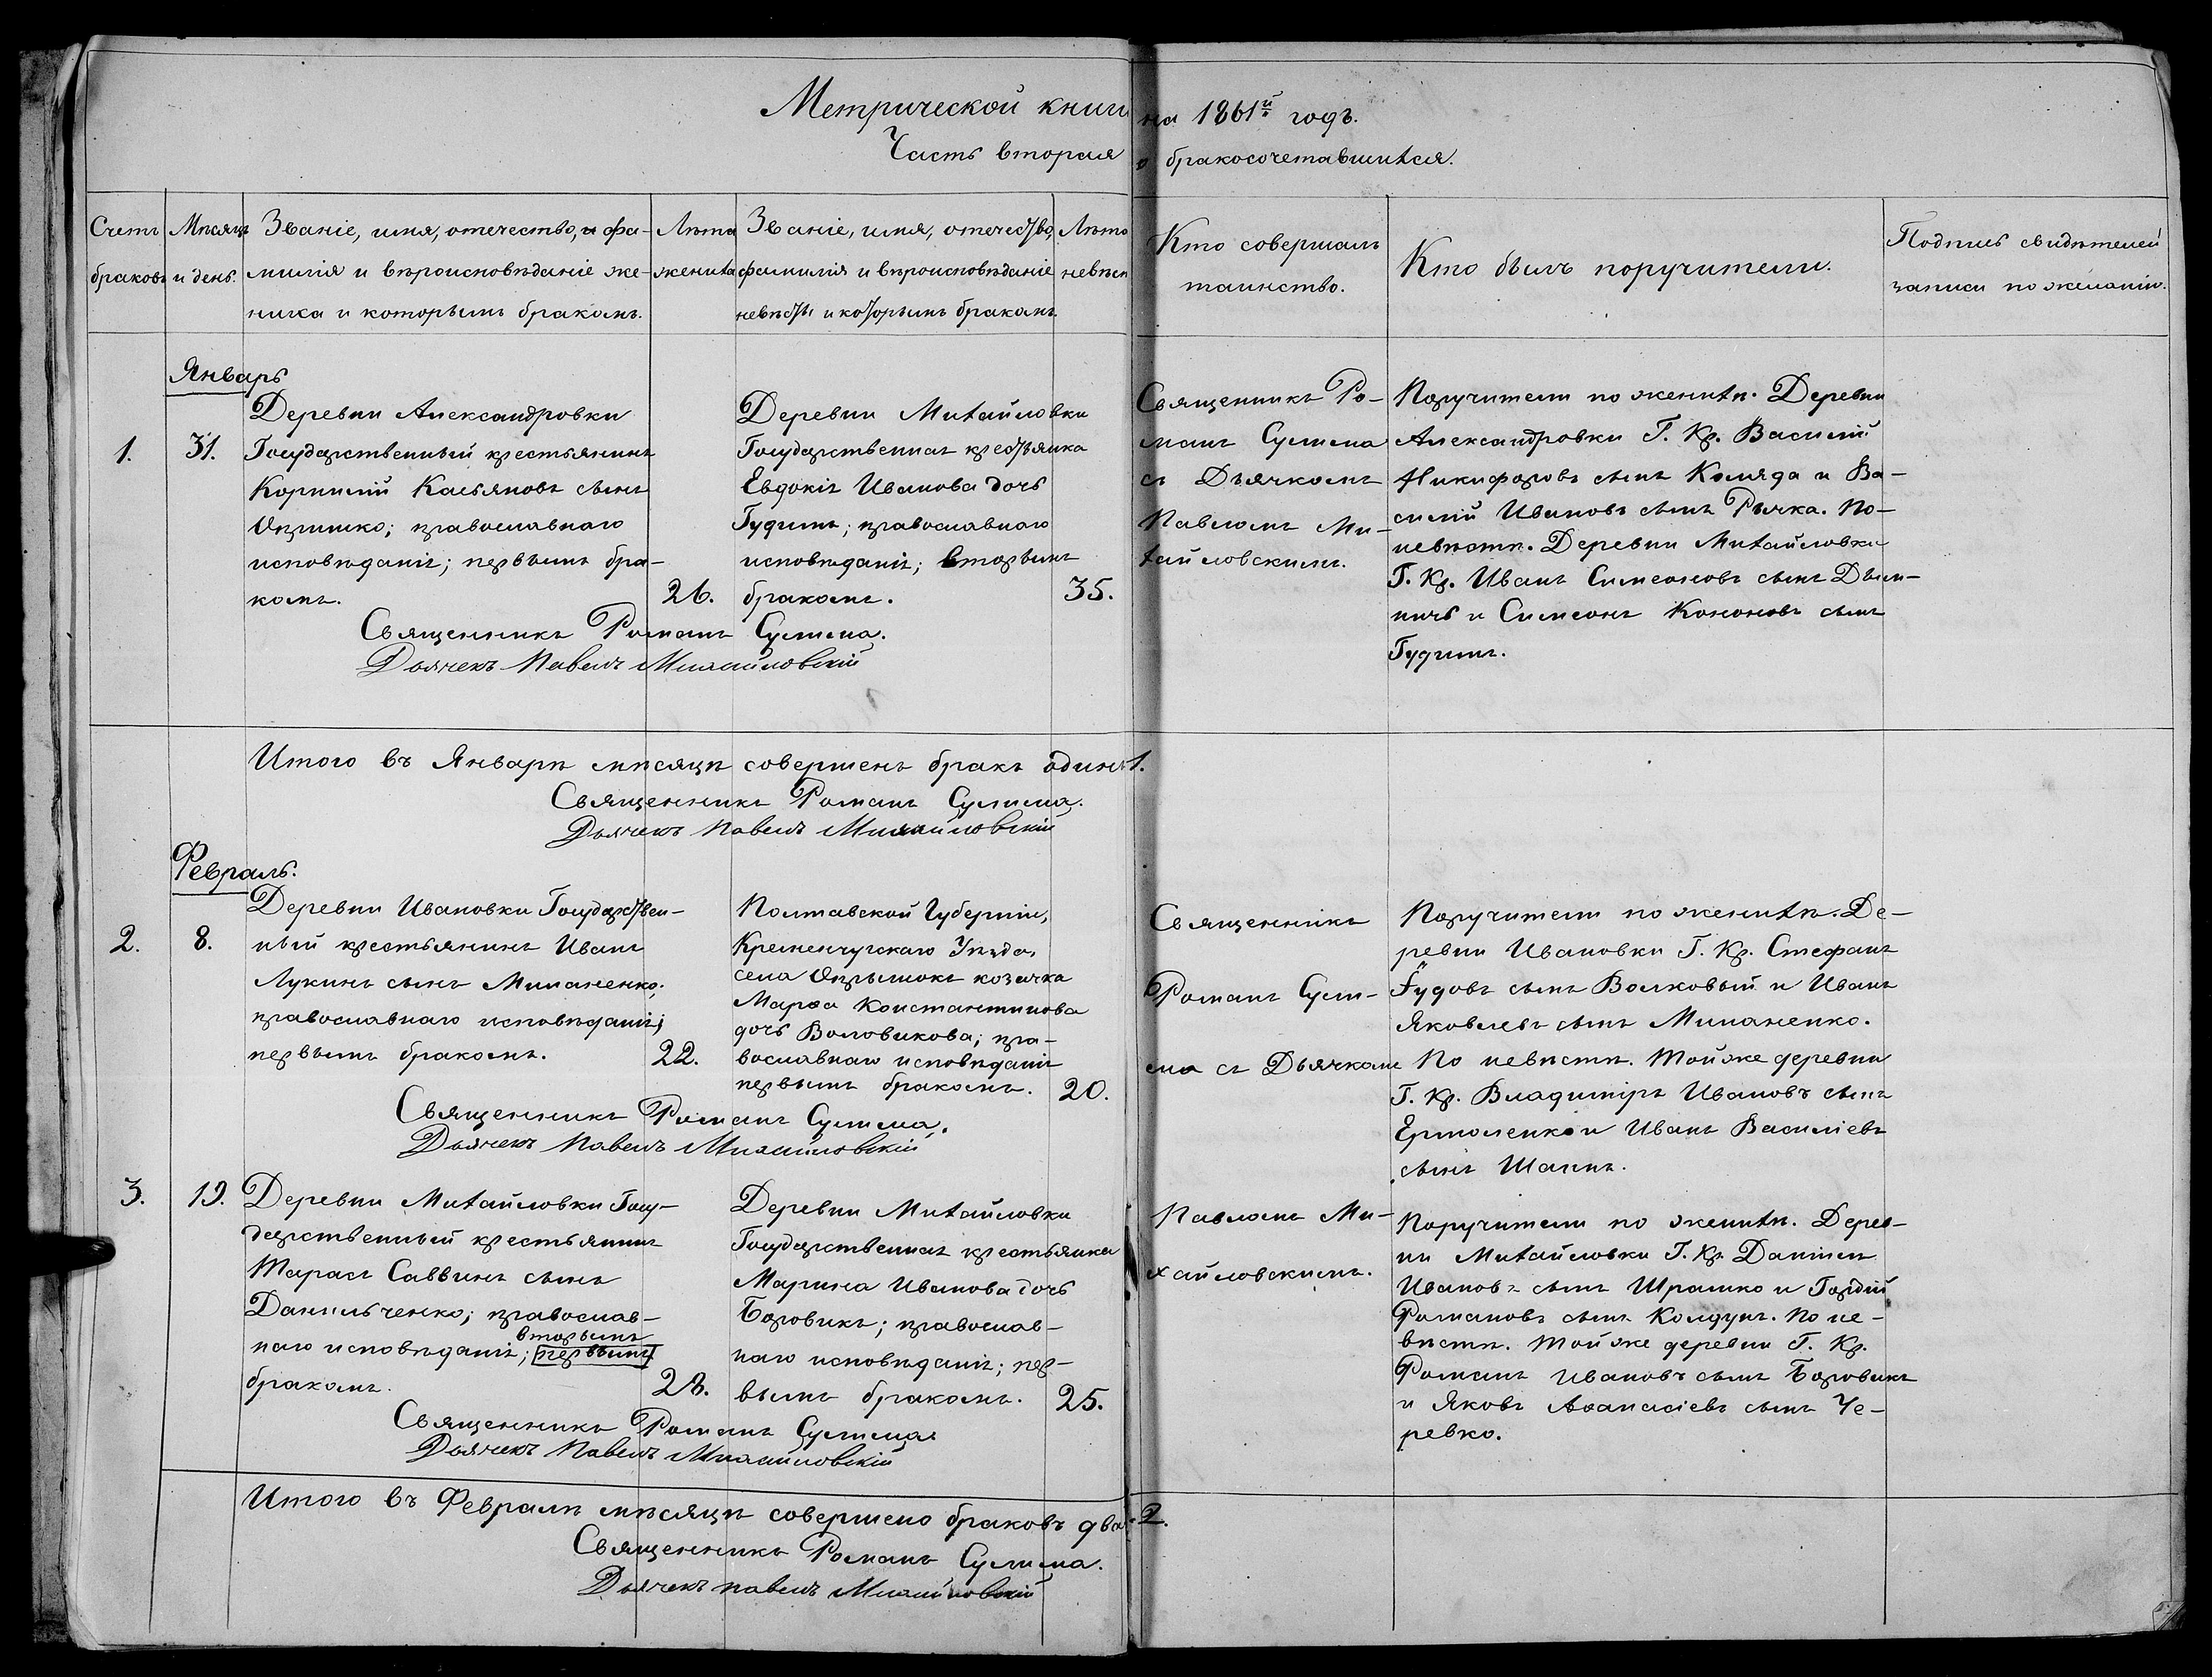 Метрической книги на 1861й годъ.
Часть вторая о бракосочетавшихся.
Счетъ
браковъ
Мѣсяцъ
и день.
Званіе, имя, отечество, и фа-
милія и вѣроисповѣданіе же-
ниха и которымъ бракомъ.
Лѣта
жениха
Званіе, имя, отечество,
фамилія и вѣроисповѣданіе
невѣсты и которымъ бракомъ.
Лѣта
невѣсты
Кто совершалъ
таинство.
Кто былъ поручители.
Подпись свидѣтелей
записи по желанію.
Январь
1.
31.
Деревни Александровки
Государственный крестьянинъ
Корнилій Касьяновъ сынъ
Опришко; православнаго
исповѣданія; первымъ бра-
комъ.
26.
Деревни Михайловки
Государственная крестьянка
Евдокія Иванова дочь
Гудимъ; православнаго
исповѣданія; вторымъ
бракомъ.
35.
Священникъ Ро-
манъ Сулима
съ Дьячкомъ
Павломъ Ми-
хайловскимъ.
Поручители по женихѣ. Деревни
Александровки Г. Кр. Василій
Никифоровъ сынъ Коляда и Ва-
силій Ивановъ сынъ Рычка. По-
невѣстѣ. Деревни Михайловки
Г. Кр. Иванъ Симеоновъ сынъ Дым-
ничь и Симеонъ Кононовъ сынъ
Гудимъ.
Священникъ Романъ Сулима.
Дьячекъ Павелъ Михайловскій
Итого въ Январѣ мѣсяцѣ совершенъ бракъ одинъ 1.
Священникъ Романъ Сулима.
Дьячекъ Павелъ Михайловскій
Февраль.
2.
8.
Деревни Ивановки Государствен-
ный крестьянинъ Иванъ
Лукинъ сынъ Миланенко;
православнаго исповѣданія;
первымъ бракомъ.
22.
Полтавской Губерніи,
Кременчугскаго Уѣзда,
села Опрышокъ козачка
Марѳа Константинова
дочь Воловикова; пра-
вославнаго исповѣданія
первымъ бракомъ.
20.
Священникъ
Романъ Сули-
ма съ Дьячкомъ
Поручители по женихѣ. Де-
ревни Ивановки Г. Кр. Стефанъ
Іудовъ сынъ Волковый и Иванъ
Яковлевъ сынъ Миланенко.
По невѣстѣ. Той же деревни
Г. Кр. Владиміръ Ивановъ сынъ
Ермоленко и Иванъ Василіевъ
сынъ
Священникъ Романъ Сулима.
Дьячекъ Павелъ Михайловскій
3.
19.
Деревни Михайловки Госу-
дарственный крестьянинъ
Тарасъ Саввинъ сынъ
Данильченко; православ-
вторымъ
наго исповѣданія; первымъ
бракомъ.
28.
Деревни Михайловки
Государственная крестьянка
Марина Иванова дочь
Боровикъ; православ-
наго исповѣданія; пер-
вымъ бракомъ.
25.
Павломъ Ми-
хайловскимъ.
Поручители по женихѣ. Дерев-
ни Михайловки Г. Кр. Даніилъ
Ивановъ сынъ Шрамко и Гордій
Романовъ сынъ Колдунъ. По не-
вѣстѣ. Той же деревни Г. Кр.
Романъ Ивановъ сынъ Боровикъ
и Яковъ Аѳанасіевъ сынъ Че-
ревко.
Священникъ Романъ Сулима
Дьячекъ Павелъ Михайловскій
Итого въ Февралѣ мѣсяцѣ совершено браковъ два. 2.
Священникъ Романъ Сулима.
Дьячекъ Павелъ Михайловскій